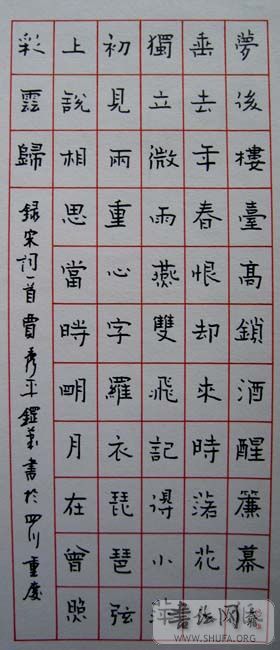 夢後樓臺高鎖酒醒簾幕
垂去年春恨却來時落花
獨立微雨燕雙飛記得小蘋
初見兩重心字羅衣琵琶弦
上說相思當時明月在曾照
彩雲歸
録宋詞一首 平 書於四川重慶
书法网
WWW.SHUFA.ORG